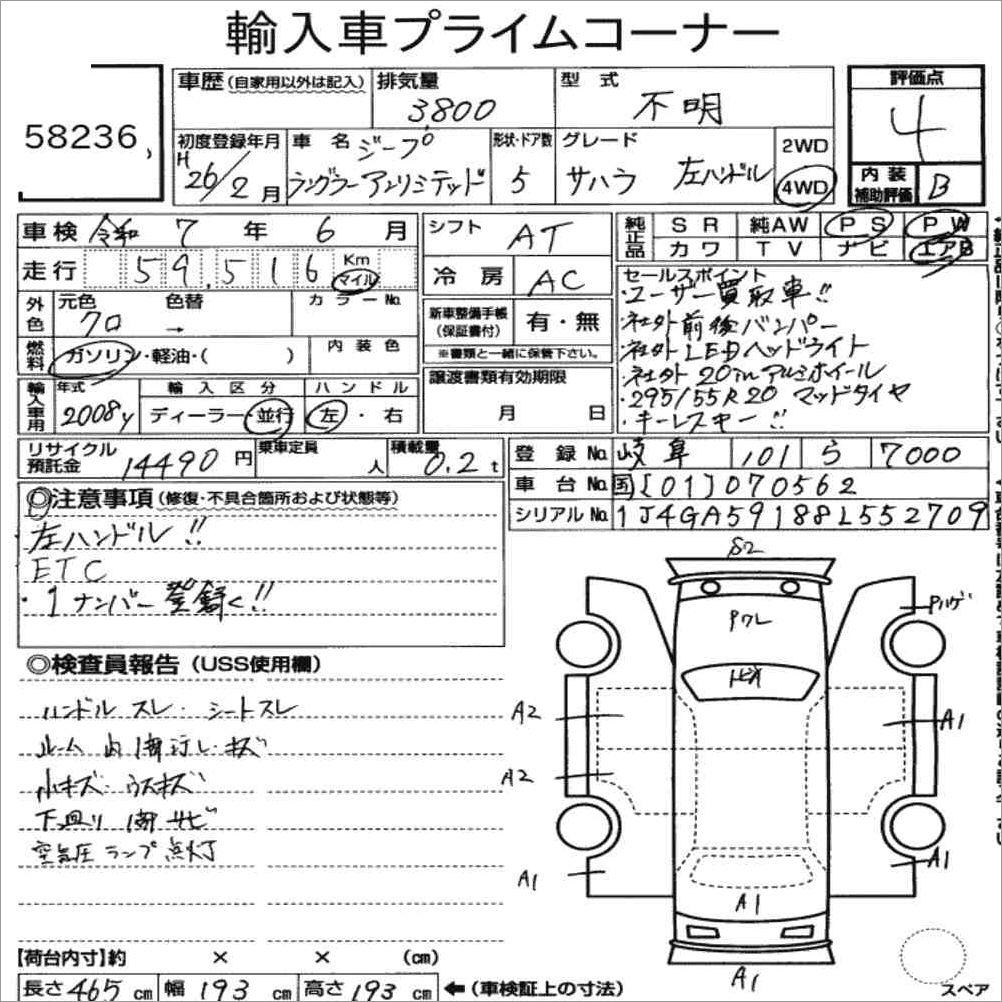 輸入車プライムコーナー
58236
車歴(自家用以外は記入)
排気量
3,800
型式
不明
評価点
4
初度登録年月
H 26/2月
車名
ジープ
ラングラーアンリミテッド
形状・ドア数
5
グレード
サハラ 左ハンドル
2WD
4WD
内装補助評価
B
車検 令和 7年 6月
シフト AT
純正品
SR 純AW PS PW
カワ TV ナビ エアB
走行 59,516 Km マイル
冷房 AC
外色
元色 クロ
色替 →
カラーNo.
新車整備手帳(保証書付)
有・無
※書類と一緒に保管下さい。
セールスポイント
・ユーザー買取車!!
・社外前後バンパー
・社外LEDヘッドライト
・社外20inアルミホイール
・295/55R20 マッドタイヤ
・キーレスキー!!
燃料
ガソリン・軽油・( )
内装色
譲渡書類有効期限
月 日
輸入車用
年式
2008y
輸入区分
ディーラー・並行
ハンドル
左・右
リサイクル預託金
14490円
乗車定員
人
積載量
0.2t
登録No. 岐阜 101 ら 7000
車台No. 国[01]070562
シリアルNo. 1J4GA59188L552709
◎注意事項(修復・不具合箇所および状態等)
左ハンドル!!
ETC
・1ナンバー登録!!
◎検査員報告(USS使用欄)
ハンドルスレ・シートスレ
ルーム内 1部汚レ・キズ
小キズ ウスキズ
下廻り 1部サビ
空気圧ランプ点灯
S2
Pワレ
トビ石
Pハゲ
A2
A1
A2
A1
A1
A1
A1
スペア
【荷台内寸】約 × × (cm)
長さ 465cm 幅 193cm 高さ 193cm ←(車検証上の寸法)